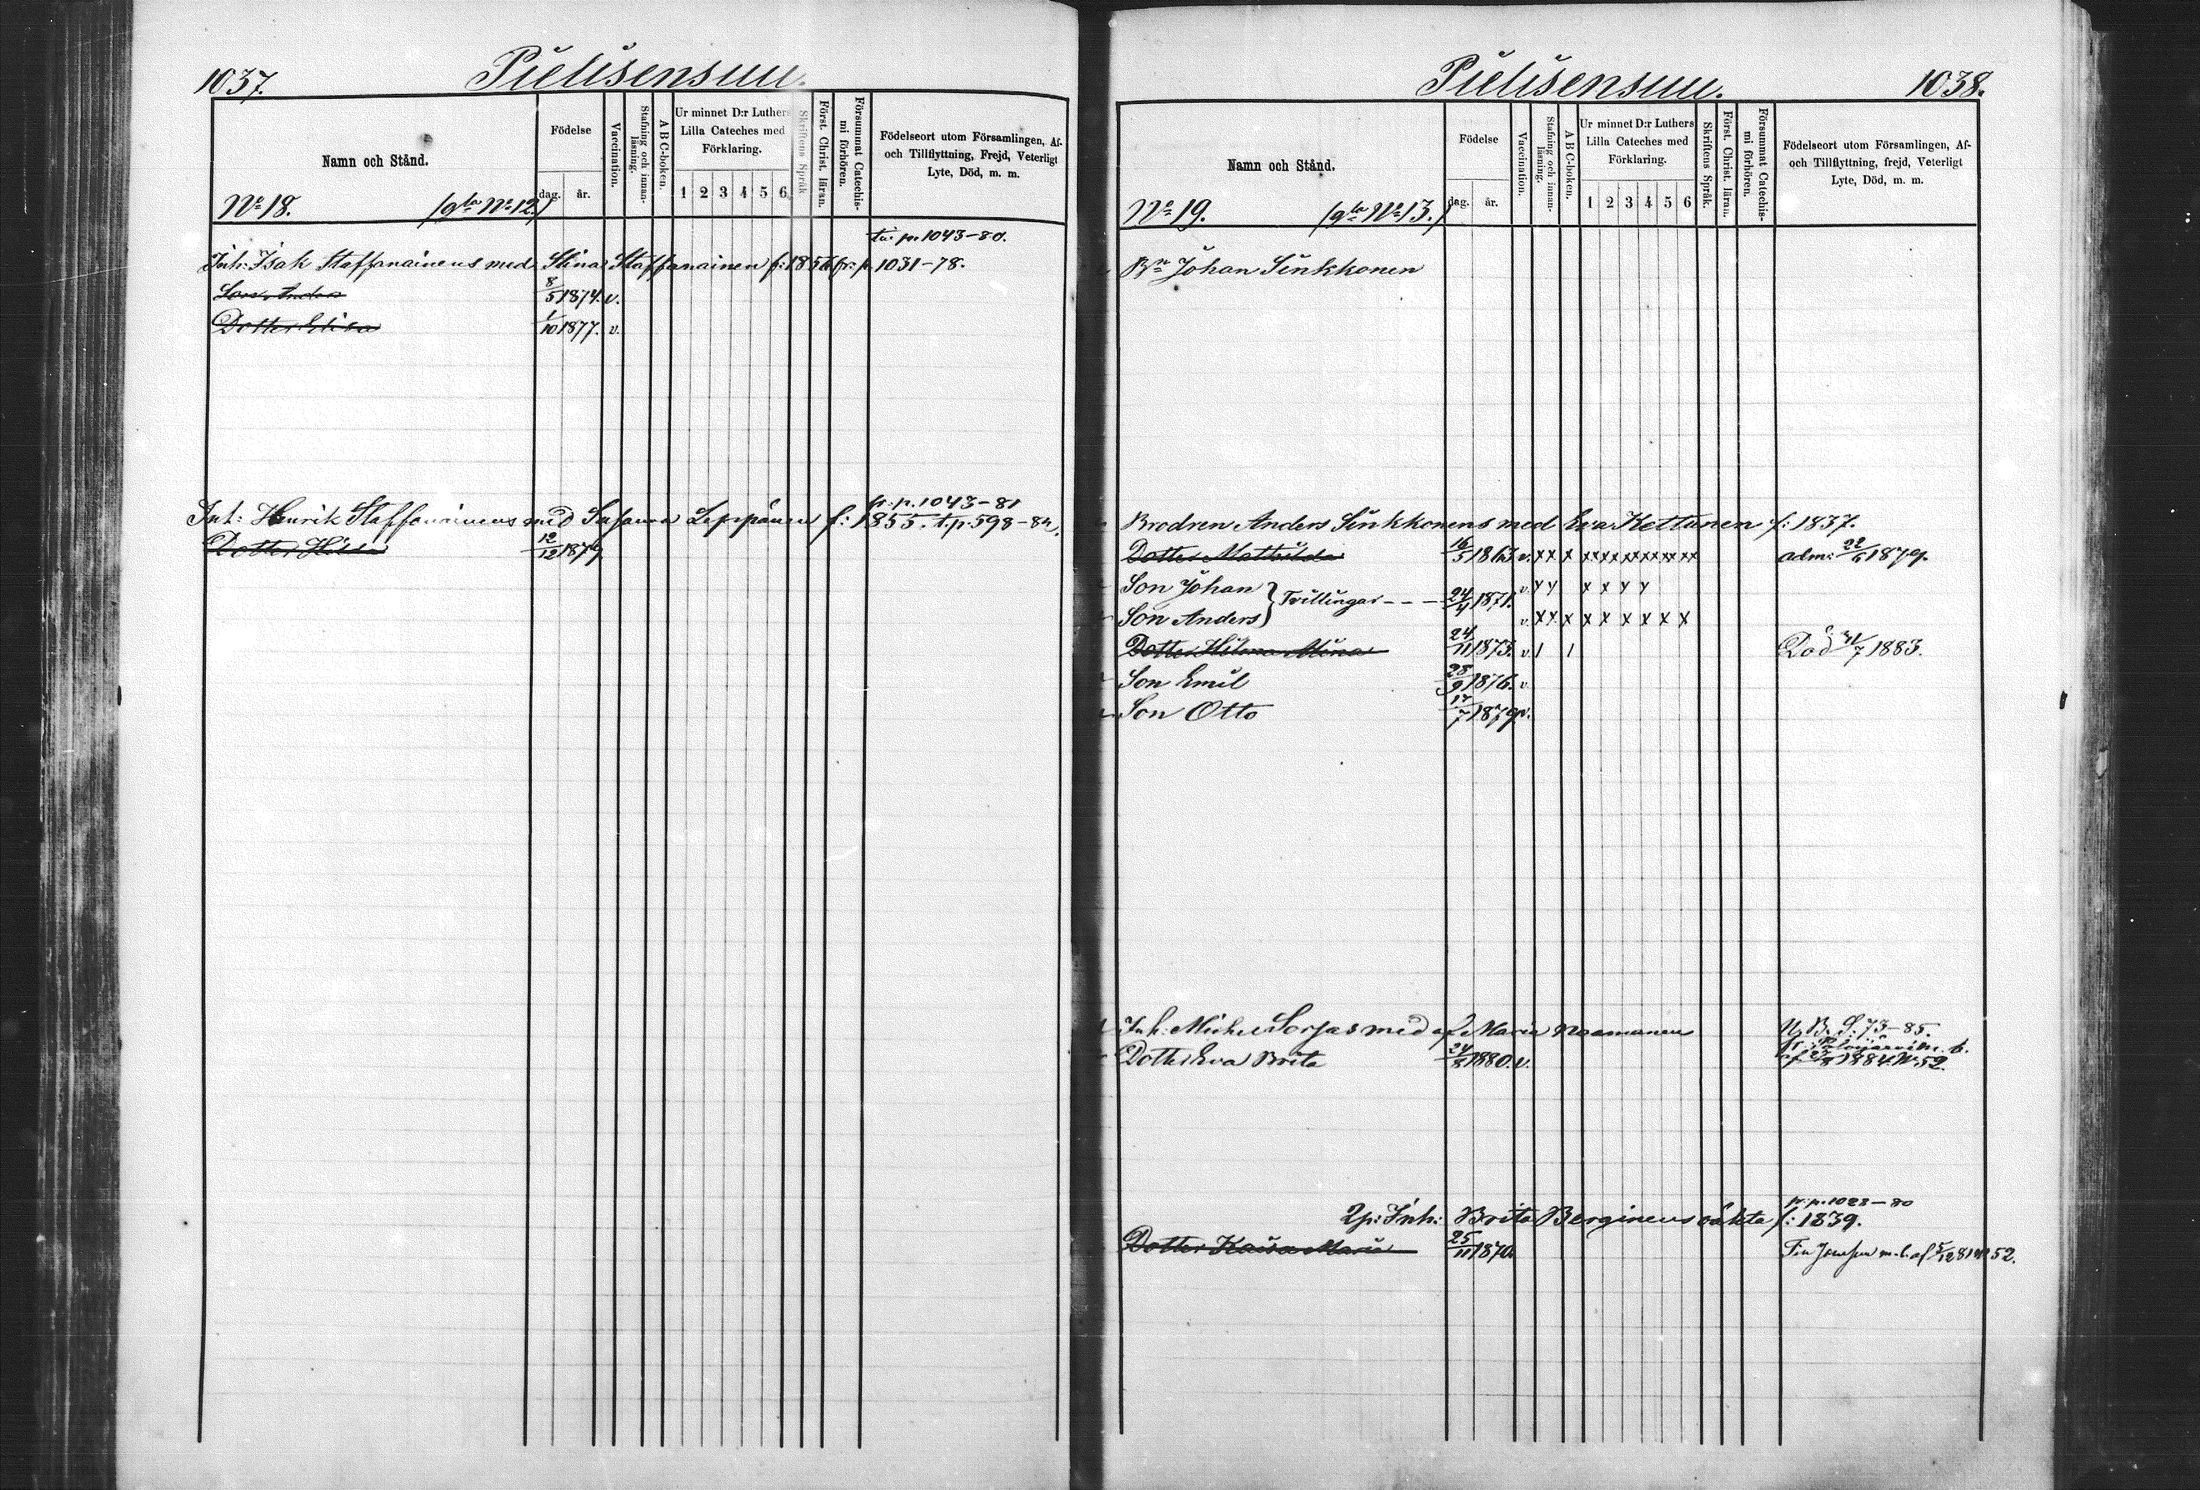 1037.
Pielisensuu.
Namn och Stånd.
Födelse
dag. år.
Vaccination.
Stafning och innanläsning.
A B C-boken.
Ur minnet D:r Luthers
Lilla Cateches med
Förklaring.
1 2 3 4 5 6
Skriftens Språk
Först. Christ. läran.
Försummat Catechismi förhören.
Födelseort utom Församlingen, Af-
och Tillflyttning, Frejd, Veterligt
Lyte, Död, m. m.
No 18. (gla No 12.)
p. 1043-80.
Inh: Isak Staffanainens med Stina Staffanainen f: 1856 fr: p. 1031-78.
Son Anders 8/5 1874. v.
Dotter Elisa 1/10 1877. v.
fr: p. 1043-81
Inh: Henrik Staffanainens med Susanna Leppänen f: 1855. t. p. 598-82.
Dotter Hilda 12/12 1879
Pielisensuu.
1038.
Namn och Stånd.
Födelse
dag. år.
Vaccination.
Stafning och innanläsning.
A B C-boken.
Ur minnet D:r Luthers
Lilla Cateches med
Förklaring.
1 2 3 4 5 6
Skriftens Språk.
Först. Christ. läran.
Försummat Catechismi förhören.
Födelseort utom Församlingen, Af-
och Tillflyttning, frejd, Veterligt
Lyte, Död, m. m.
No 19. (gla No 13.)
Bn Johan Sinkkonen
Brodren Anders Sinkkonens med Eva Kettunen f: 1837.
Dotter Mathilda 16/5 1863 v. xx x xxxxxxxxxx adm: 22/6 1879.
Son Johan } Tvillingar - - - 24/4 1871. v x x x x x x
Son Anders v. xx x x x x x x x
Dotter Hilma Mina 24/11 1873. v. Död 31/7 1883.
Son Emil 28/9 1876. v.
Son Otto 17/7 1879 v.
Inh: Michel Sorjas med Maria Naamanen N. B. S. 73-85.
Dotter Eva Brita 24/8 1880. v. af 1884 No 52.
fr: p. 1023-80
2p: Inh: Brita Berginens oäkta f: 1839.
Dotter Kaisa Maria 25/11 1870. Till Joensuu m. b. af 5/12 81 No 52.